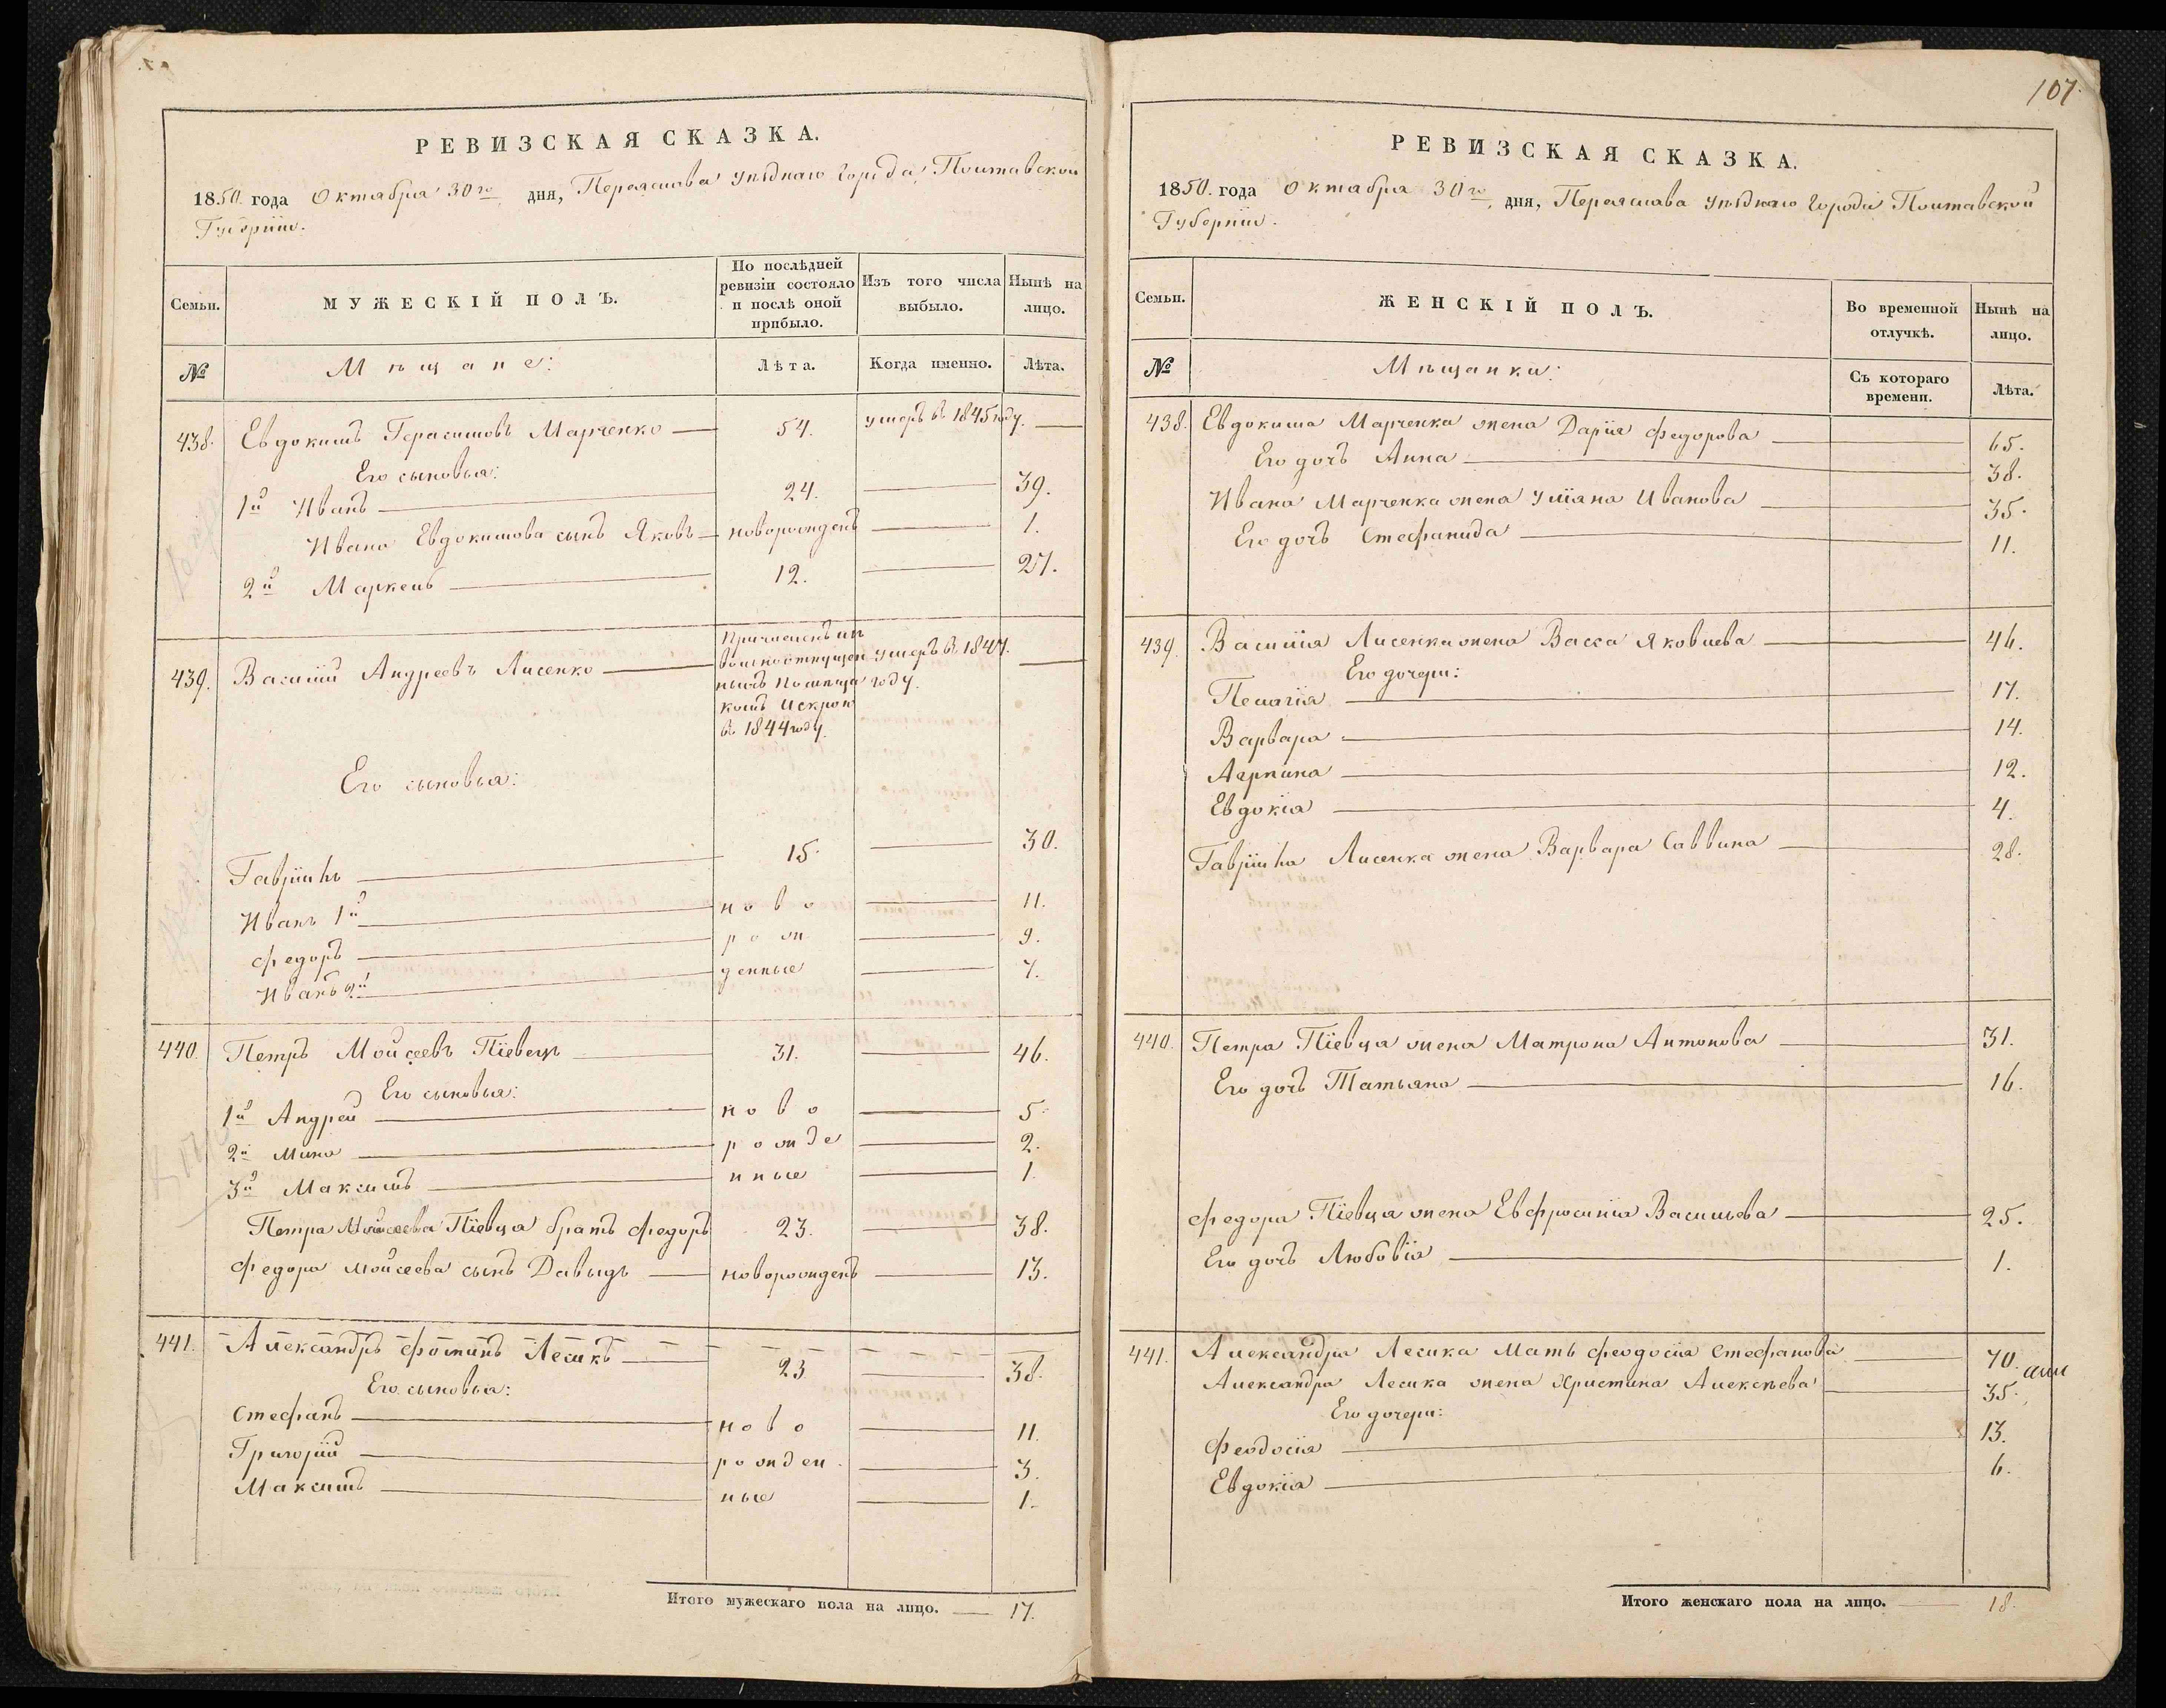 РЕВИЗСКАЯ СКАЗКА.
1850. года Октября 30го дня, Переяслава уѣзднаго города, Полтавской
Губерніи.
Семьи.
МУЖЕСКІЙ ПОЛЪ.
По послѣдней ревизіи состояло и послѣ оной прибыло.
Изъ того числа выбыло.
Нынѣ на лицо.
№
Мѣщане:
Лѣта.
Когда именно.
Лѣта.
438. Евдокимъ Герасимовъ Марченко — 54. умеръ въ 1845 году. —
Его сыновья:
1й Иванъ — 24. — 39.
Ивана Евдокимова сынъ Яковъ — новорожденъ — 1.
2й Маркелъ — 12. — 27.
439. Василій Андреевъ Лисенко — Причисленъ из вольноотпущенныхъ помещикомъ Искрою въ 1844 году. умеръ в 1847. году. —
Его сыновья:
Гавріилъ — 15. — 30.
Иванъ 1й — ново — 11.
Федоръ — рож — 9.
Иванъ 2й — денные — 7.
440. Петръ Мойсеевъ Пѣвецъ — 31. — 46.
Его сыновья:
1й Андрей — ново — 5.
2й Мина — рожде — 2.
3й Максимъ — нные — 1.
Петра Мойсеева Пѣвца братъ Федоръ 23. — 38.
Федора Мойсеева сынъ Давыдъ — новорожденъ — 13.
441. Александръ Фоминъ Лесикъ — 23 — 38.
Его сыновья:
Стефанъ — ново — 11.
Григорій — рожден — 3.
Максимъ — ные — 1.
Итого мужескаго пола на лицо. — 17.
107.
РЕВИЗСКАЯ СКАЗКА.
1850. года Октября 30го, дня, Переяслава уѣзднаго города Полтавской
Губерніи.
Семьи.
ЖЕНСКІЙ ПОЛЪ.
Во временной отлучкѣ.
Нынѣ на лицо.
№
Мѣщанки:
Съ котораго времени.
Лѣта.
438. Евдокима Марченка жена Дарія Федорова — 65.
Его дочь Анна — 38.
Ивана Марченка жена Уліяна Иванова — 35.
Его дочь Стефанида — 11.
439. Василія Лисенка жена Васса Яковлева — 46.
Его дочери:
Пелагія — 17.
Варвара — 14.
Агрпина — 12.
Евдокія — 4.
Гавріила Лисенка жена Варвара Саввина — 28.
440. Петра Пѣвца жена Матрона Антонова — 31.
Его дочь Татьяна — 16.
Федора Пѣвца жена Евфросинія Васильева — 25.
Его дочь Любовія — 1.
441. Александра Лесика Мать Феодосія Стефанова — 70.
Александра Лесика жена Христина Алексѣева — 35.
Его дочери:
Феодосія — 13.
Евдокія — 6.
Итого женскаго пола на лицо. — 18.